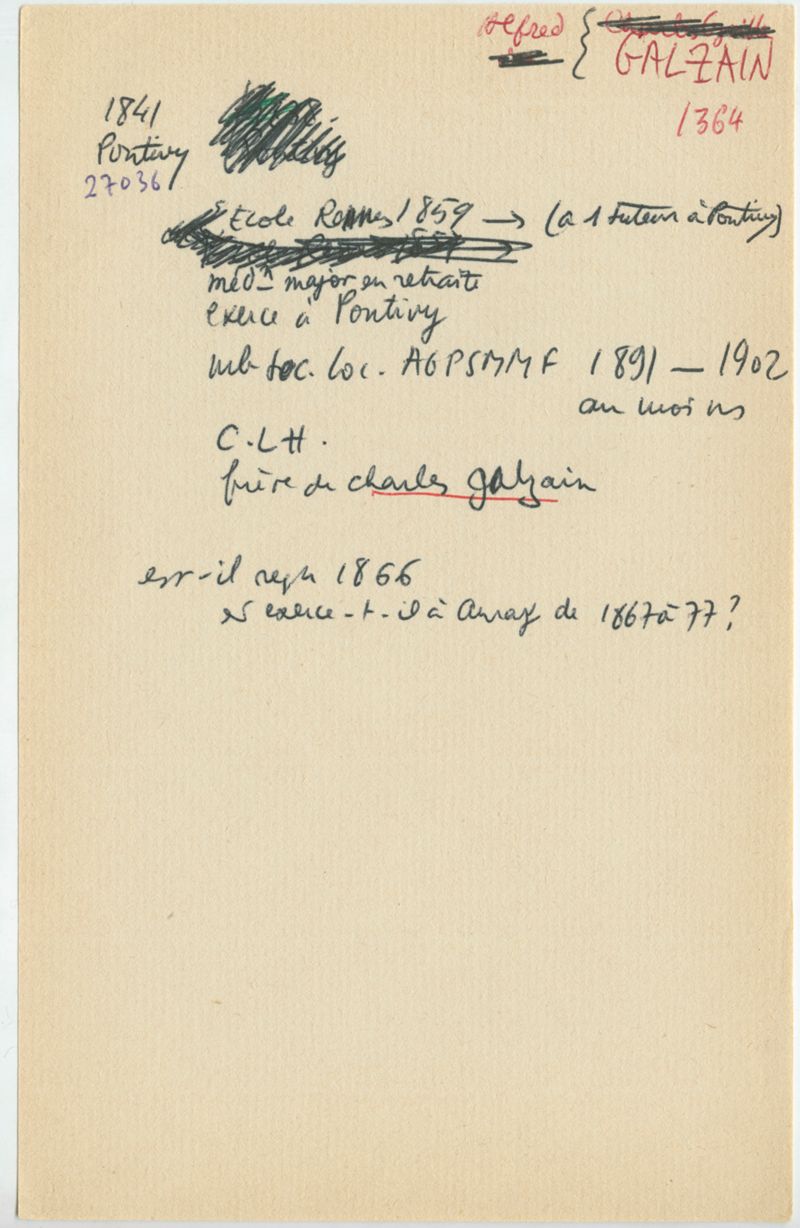 Alfred { Charles
GALZAIN
1364
1841
Pontivy
27036
Ecole Rennes 1859 → (a 1 tuteur à Pontivy)
médⁿ major en retraite
exerce à Pontivy
mb soc. loc. AGPSMMF 1891 — 1902
au moins
C.LH.
frère de Charles Galzain
est-il reçu 1866
et exerce-t-il à Auray de 1867 à 77?